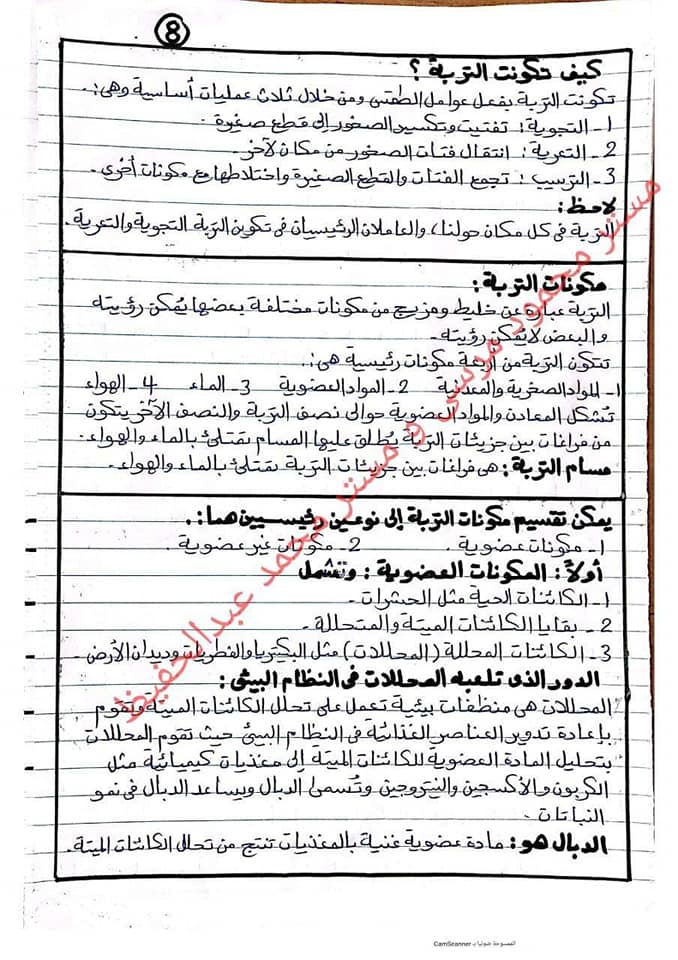 8
كيف تكونت التربة ؟
تكونت التربة بفعل عوامل الطقس ومن خلال ثلاث عمليات أساسية وهى:-
1- التجوية: تفتيت وتكسير الصخور إلى قطع صغيرة.
2- التعرية: انتقال فتات الصخور من مكان لآخر.
3- الترسيب: تجمع الفتات والقطع الصغيرة واختلاطها مع مكونات أخرى.
لاحظ:
التربة فى كل مكان حولنا، والعاملان الرئيسيان فى تكوين التربة التجوية والتعرية.
مكونات التربة:
التربة عبارة عن خليط ومزيج من مكونات مختلفة بعضها يُمكن رؤيته
والبعض لا يُمكن رؤيته.
تتكون التربة من أربعة مكونات رئيسية هى:-
1- المواد الصخرية والمعدنية 2- المواد العضوية 3- الماء 4- الهواء
تُشكل المعادن والمواد العضوية حوالى نصف التربة والنصف الآخر يتكون
من فراغات بين جزيئات التربة يُطلق عليها المسام تمتلئ بالماء والهواء.
مسام التربة: هى فراغات بين جزيئات التربة تمتلئ بالماء والهواء.
يمكن تقسيم مكونات التربة إلى نوعين رئيسيين هما:-
1- مكونات عضوية. 2- مكونات غير عضوية.
أولاً: المكونات العضوية: وتشمل
1- الكائنات الحية مثل الحشرات.
2- بقايا الكائنات الميتة والمتحللة.
3- الكائنات المحللة (المحللات) مثل البكتريا والفطريات وديدان الأرض.
الدور الذى تلعبه المحللات فى النظام البيئى:
المحللات هى منظفات بيئية تعمل على تحلل الكائنات الميتة وتقوم
بإعادة تدوير العناصر الغذائية فى النظام البيئى حيث تقوم المحللات
بتحليل المادة العضوية للكائنات الميتة إلى مغذيات كيميائية مثل
الكربون والأكسجين والنيتروجين وتُسمى الدبال ويساعد الدبال فى نمو
النباتات.
الدبال هو: مادة عضوية غنية بالمغذيات تنتج من تحلل الكائنات الميتة.
مستر محمود مرسى و مستر محمد عبدالحفيظ
الممسوحة ضوئيا بـ CamScanner